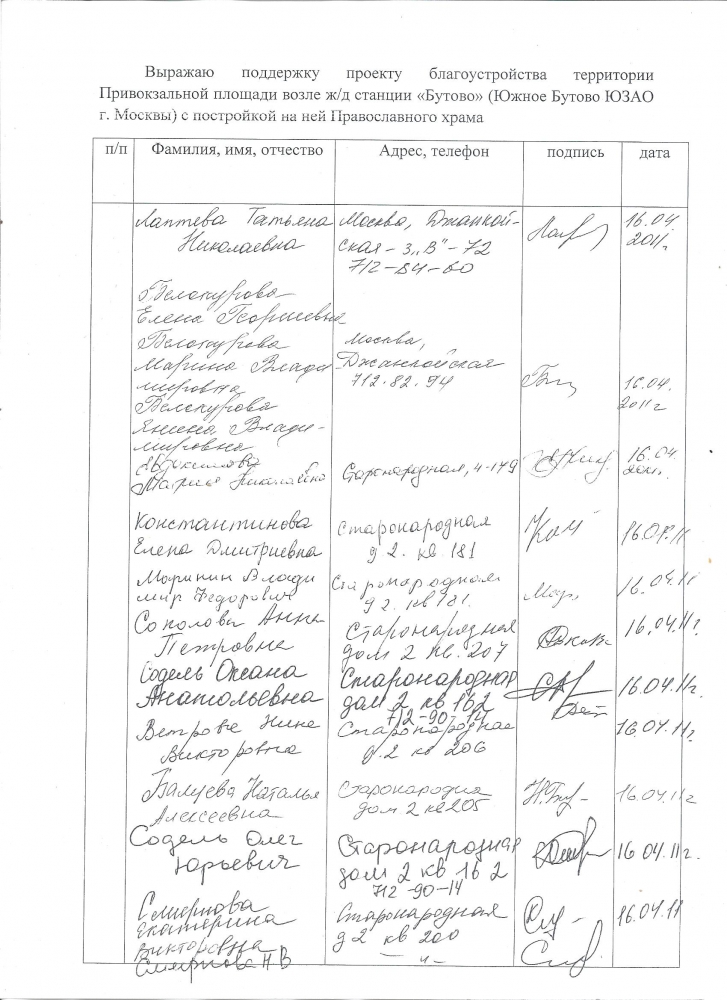 Выражаю поддержку проекту благоустройства территории
Привокзальной площади возле ж/д станции «Бутово» (Южное Бутово ЮЗАО
г. Москвы) с постройкой на ней Православного храма
п/п Фамилия, имя, отчество Адрес, телефон подпись дата
Лаптева Татьяна Москва, Джанкой- 16.04.
Николаевна ская - 3„В" - 72 2011г.
712-84-60
Белокурова
Елена Георгиевна
Белокурова Москва,
Марина Влади- Джанкойская
мировна 712.82.94 16.04.
Белокурова 2011г
Янина Влади-
мировна
Старонародная, 4-179 16.04
Мария Николаевна 2011г.
Константинова Старонародная
Елена Дмитриевна д 2. кв. 181 16.04.11
Маринин Влади Старонародная 16.04.11
мир Федорович д 2. кв 181.
Соколова Анна Старонародная 16.04.11г.
Петровна дом 2 кв. 207
Содель Оксана Старонародная
Анатольевна дом 2 кв 162 16.04.11г.
712-90-14
Ветрова Нина Старонародная 16.04.11г.
Викторовна д.2 кв 206
Балуева Наталья Старонародна 16.04.11г
Алексеевна дом 2 кв 205
Содель Олег Старонародная
Юрьевич дом 2 кв 162 16.04.11г.
712-90-14
Смирнова Старонародная 16.04.11
Екатерина д 2 кв 200
Викторовна
Смирнова Н В — " —